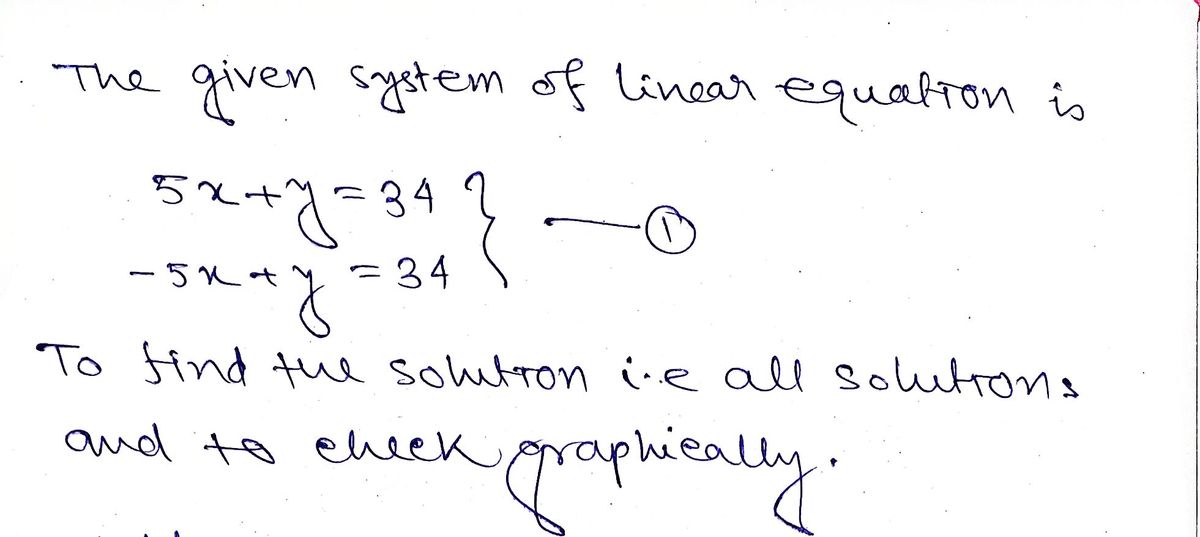 The given system of linear equation is
5x+y=34 } —①
-5x+y=34
To find the solution i.e all solutions
and to check graphically.